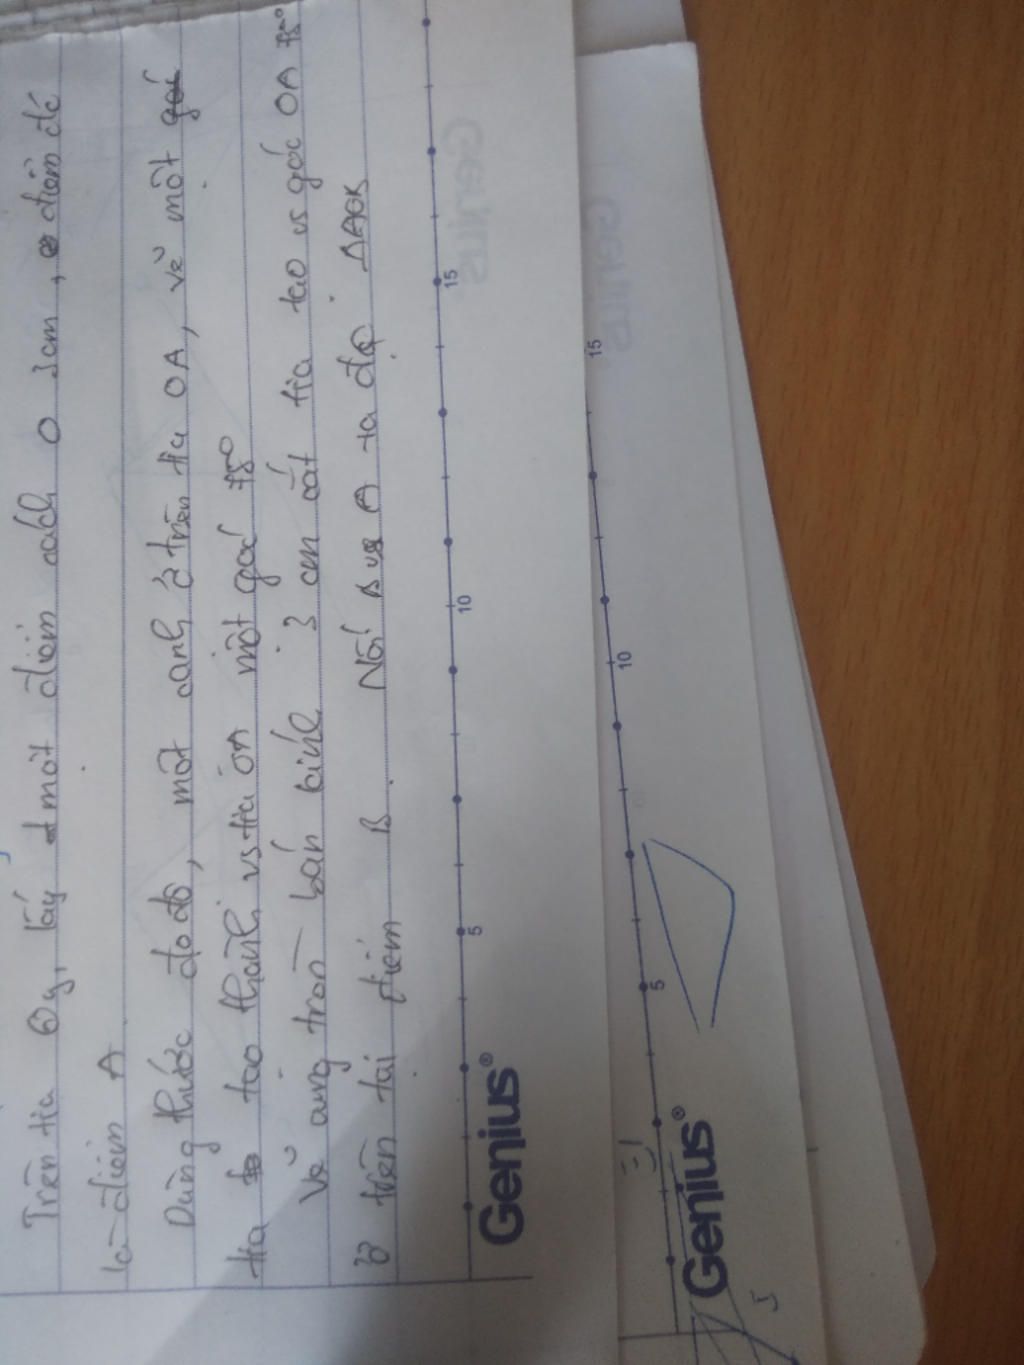 Trên tia Oy, lấy một điểm cách O 3cm, điểm đó
là điểm A
Dùng thước đo độ, một cạnh ở trên tia OA, vẽ một
tia tạo thành vs tia OA một góc 75°
Vẽ cung tròn bán kính 3 cm cắt tia tạo vs góc OA 75°
ở trên tại điểm B. Nối B và A ta đc ΔAOB
5 10 15
Genius®
5 10 15
Genius®